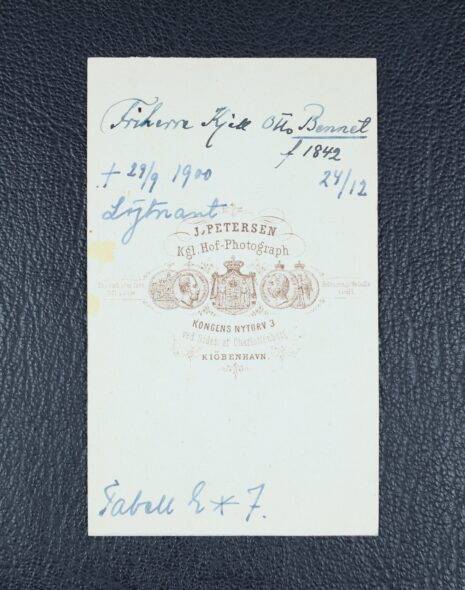 Friherre Kjell Otto Bennet
f 1842
+ 29/9 1900 24/12
Löjtnant
J. PETERSEN
Kgl. Hof-Photograph
KONGENS NYTORV 3
ved Siden af Charlottenborg
KIÖBENHAVN.
Tabell 2 * 7.